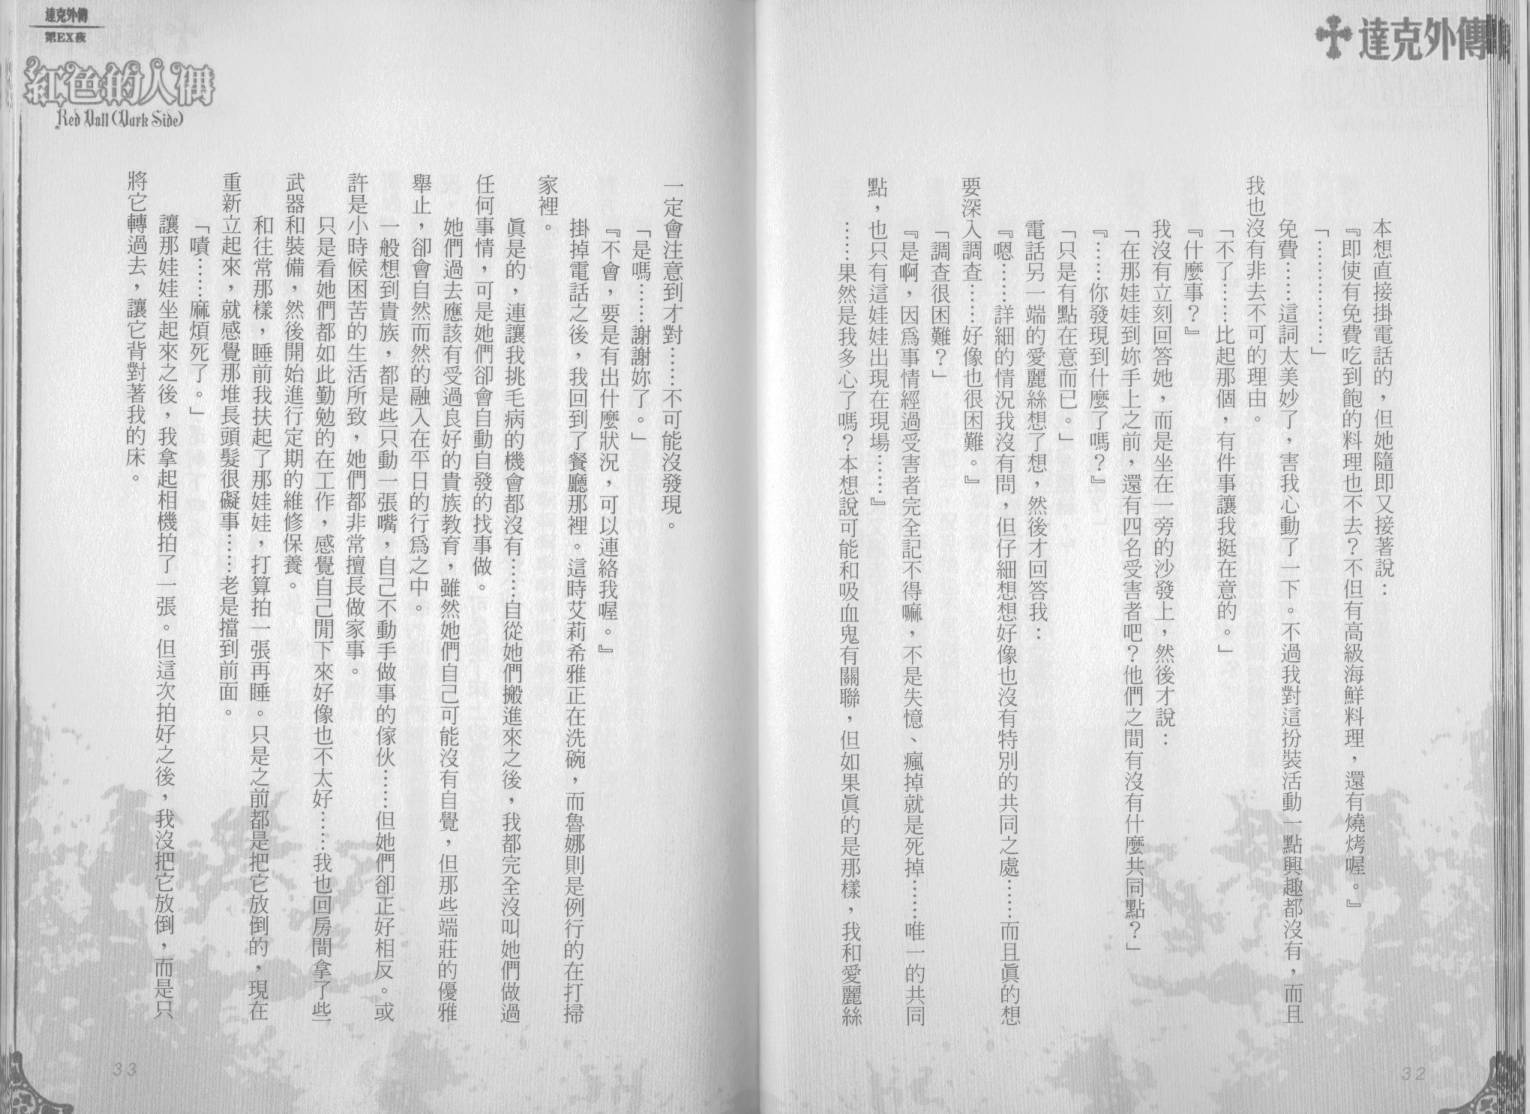 達克外傳
本想直接掛電話的，但她隨即又接著說：
『即使有免費吃到飽的料理也不去？不但有高級海鮮料理，還有燒烤喔。』
「……………」
免費……這詞太美妙了，害我心動了一下。不過我對這扮裝活動一點興趣都沒有，而且
我也沒有非去不可的理由。
「不了……比起那個，有件事讓我挺在意的。」
『什麼事？』
我沒有立刻回答她，而是坐在一旁的沙發上，然後才說：
「在那娃娃到妳手上之前，還有四名受害者吧？他們之間有沒有什麼共同點？」
『……你發現到什麼了嗎？』
「只是有點在意而已。」
電話另一端的愛麗絲想了想，然後才回答我：
『嗯……詳細的情況我沒有問，但仔細想想好像也沒有特別的共同之處……而且眞的想
要深入調查……好像也很困難。』
「調查很困難？」
『是啊，因爲事情經過受害者完全記不得嘛，不是失憶、瘋掉就是死掉……唯一的共同
點，也只有這娃娃出現在現場……』
……果然是我多心了嗎？本想說可能和吸血鬼有關聯，但如果眞的是那樣，我和愛麗絲
32
達克外傳
第EX夜
紅色的人偶
Red Doll (Dark Side)
一定會注意到才對……不可能沒發現。
「是嗎……謝謝妳了。」
『不會，要是有出什麼狀況，可以連絡我喔。』
掛掉電話之後，我回到了餐廳那裡。這時艾莉希雅正在洗碗，而魯娜則是例行的在打掃
家裡。
眞是的，連讓我挑毛病的機會都沒有……自從她們搬進來之後，我都完全沒叫她們做過
任何事情，可是她們卻會自動自發的找事做。
她們過去應該有受過良好的貴族教育，雖然她們自己可能沒有自覺，但那些端莊的優雅
舉止，卻會自然而然的融入在平日的行爲之中。
一般想到貴族，都是些只動一張嘴，自己不動手做事的傢伙……但她們卻正好相反。或
許是小時候困苦的生活所致，她們都非常擅長做家事。
只是看她們都如此勤勉的在工作，感覺自己閒下來好像也不太好……我也回房間拿了些
武器和裝備，然後開始進行定期的維修保養。
和往常那樣，睡前我扶起了那娃娃，打算拍一張再睡。只是之前都是把它放倒的，現在
重新立起來，就感覺那堆長頭髮很礙事……老是擋到前面。
「嘖……麻煩死了。」
讓那娃娃坐起來之後，我拿起相機拍了一張。但這次拍好之後，我沒把它放倒，而是只
將它轉過去，讓它背對著我的床。
33